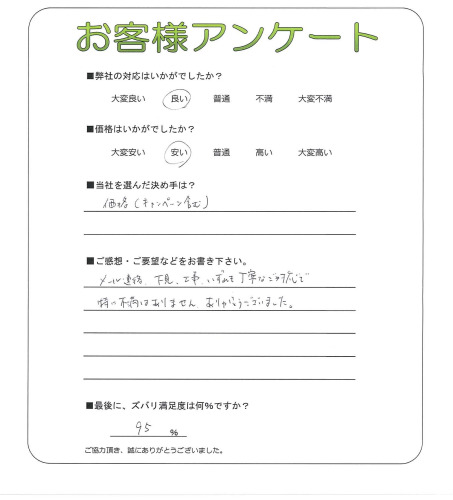 お客様アンケート
■弊社の対応はいかがでしたか？
大変良い 良い 普通 不満 大変不満
■価格はいかがでしたか？
大変安い 安い 普通 高い 大変高い
■当社を選んだ決め手は？
価格（キャンペーン含む）
■ご感想・ご要望などをお書き下さい。
メール連絡、下見、工事、いずれも丁寧なご対応で
特に不満はありません。ありがとうございました。
■最後に、ズバリ満足度は何%ですか？
95 %
ご協力頂き、誠にありがとうございました。